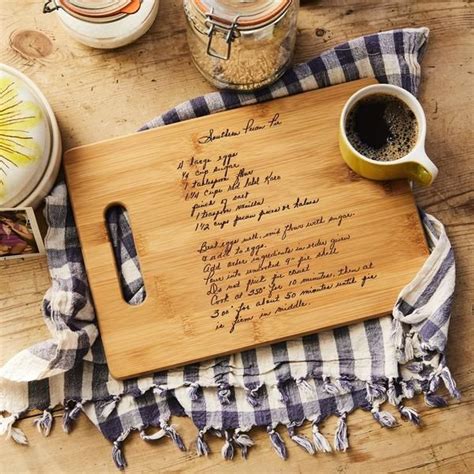 Southern Pecan Pie
4 large eggs
3/4 cup sugar
1 tablespoon flour
1 1/4 cups red label Karo
pinch of salt
1 teaspoon vanilla
1 1/2 cups pecan pieces or halves
Beat eggs well, mix flour with sugar.
add to eggs.
Add other ingredients in order given
Pour into unbaked 9" pie shell
Do not prick pie crust.
Cook at 350° for 10 minutes, then at
300° for about 50 minutes until pie
is firm in middle.